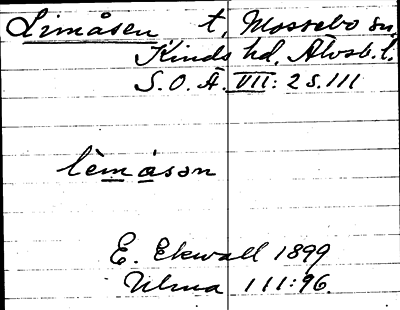 Limåsen t, Mossebo sn,
Kinds hd, Älvsb. l.
S.O.Ä. VII: 2 s. 111
lèmåsən
E. Ekwall 1899
Ulma 111:96.